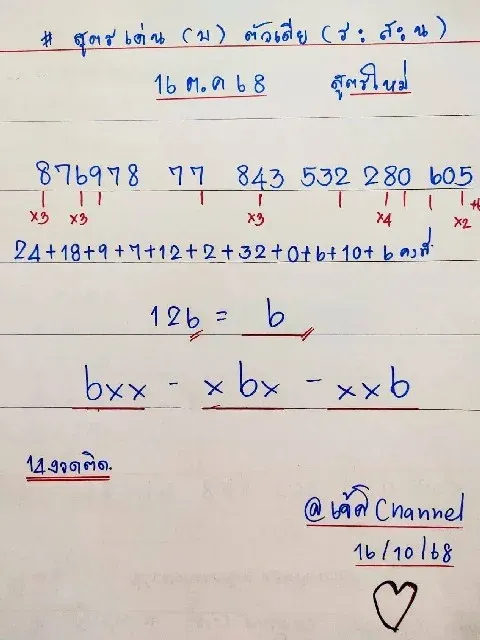 # สูตรเด่น (บ) ตัวเดีย (ระ สะ น)
16 ต.ค 68 สูตรใหม่
876978 77 843 532 280 605
x3 x3 x3 x4 x2 +6
24+18+9+7+12+2+32+0+6+10+6 คงที่
126 = 6
6xx - x6x - xx6
14 งวดติด.
Channel
16/10/68